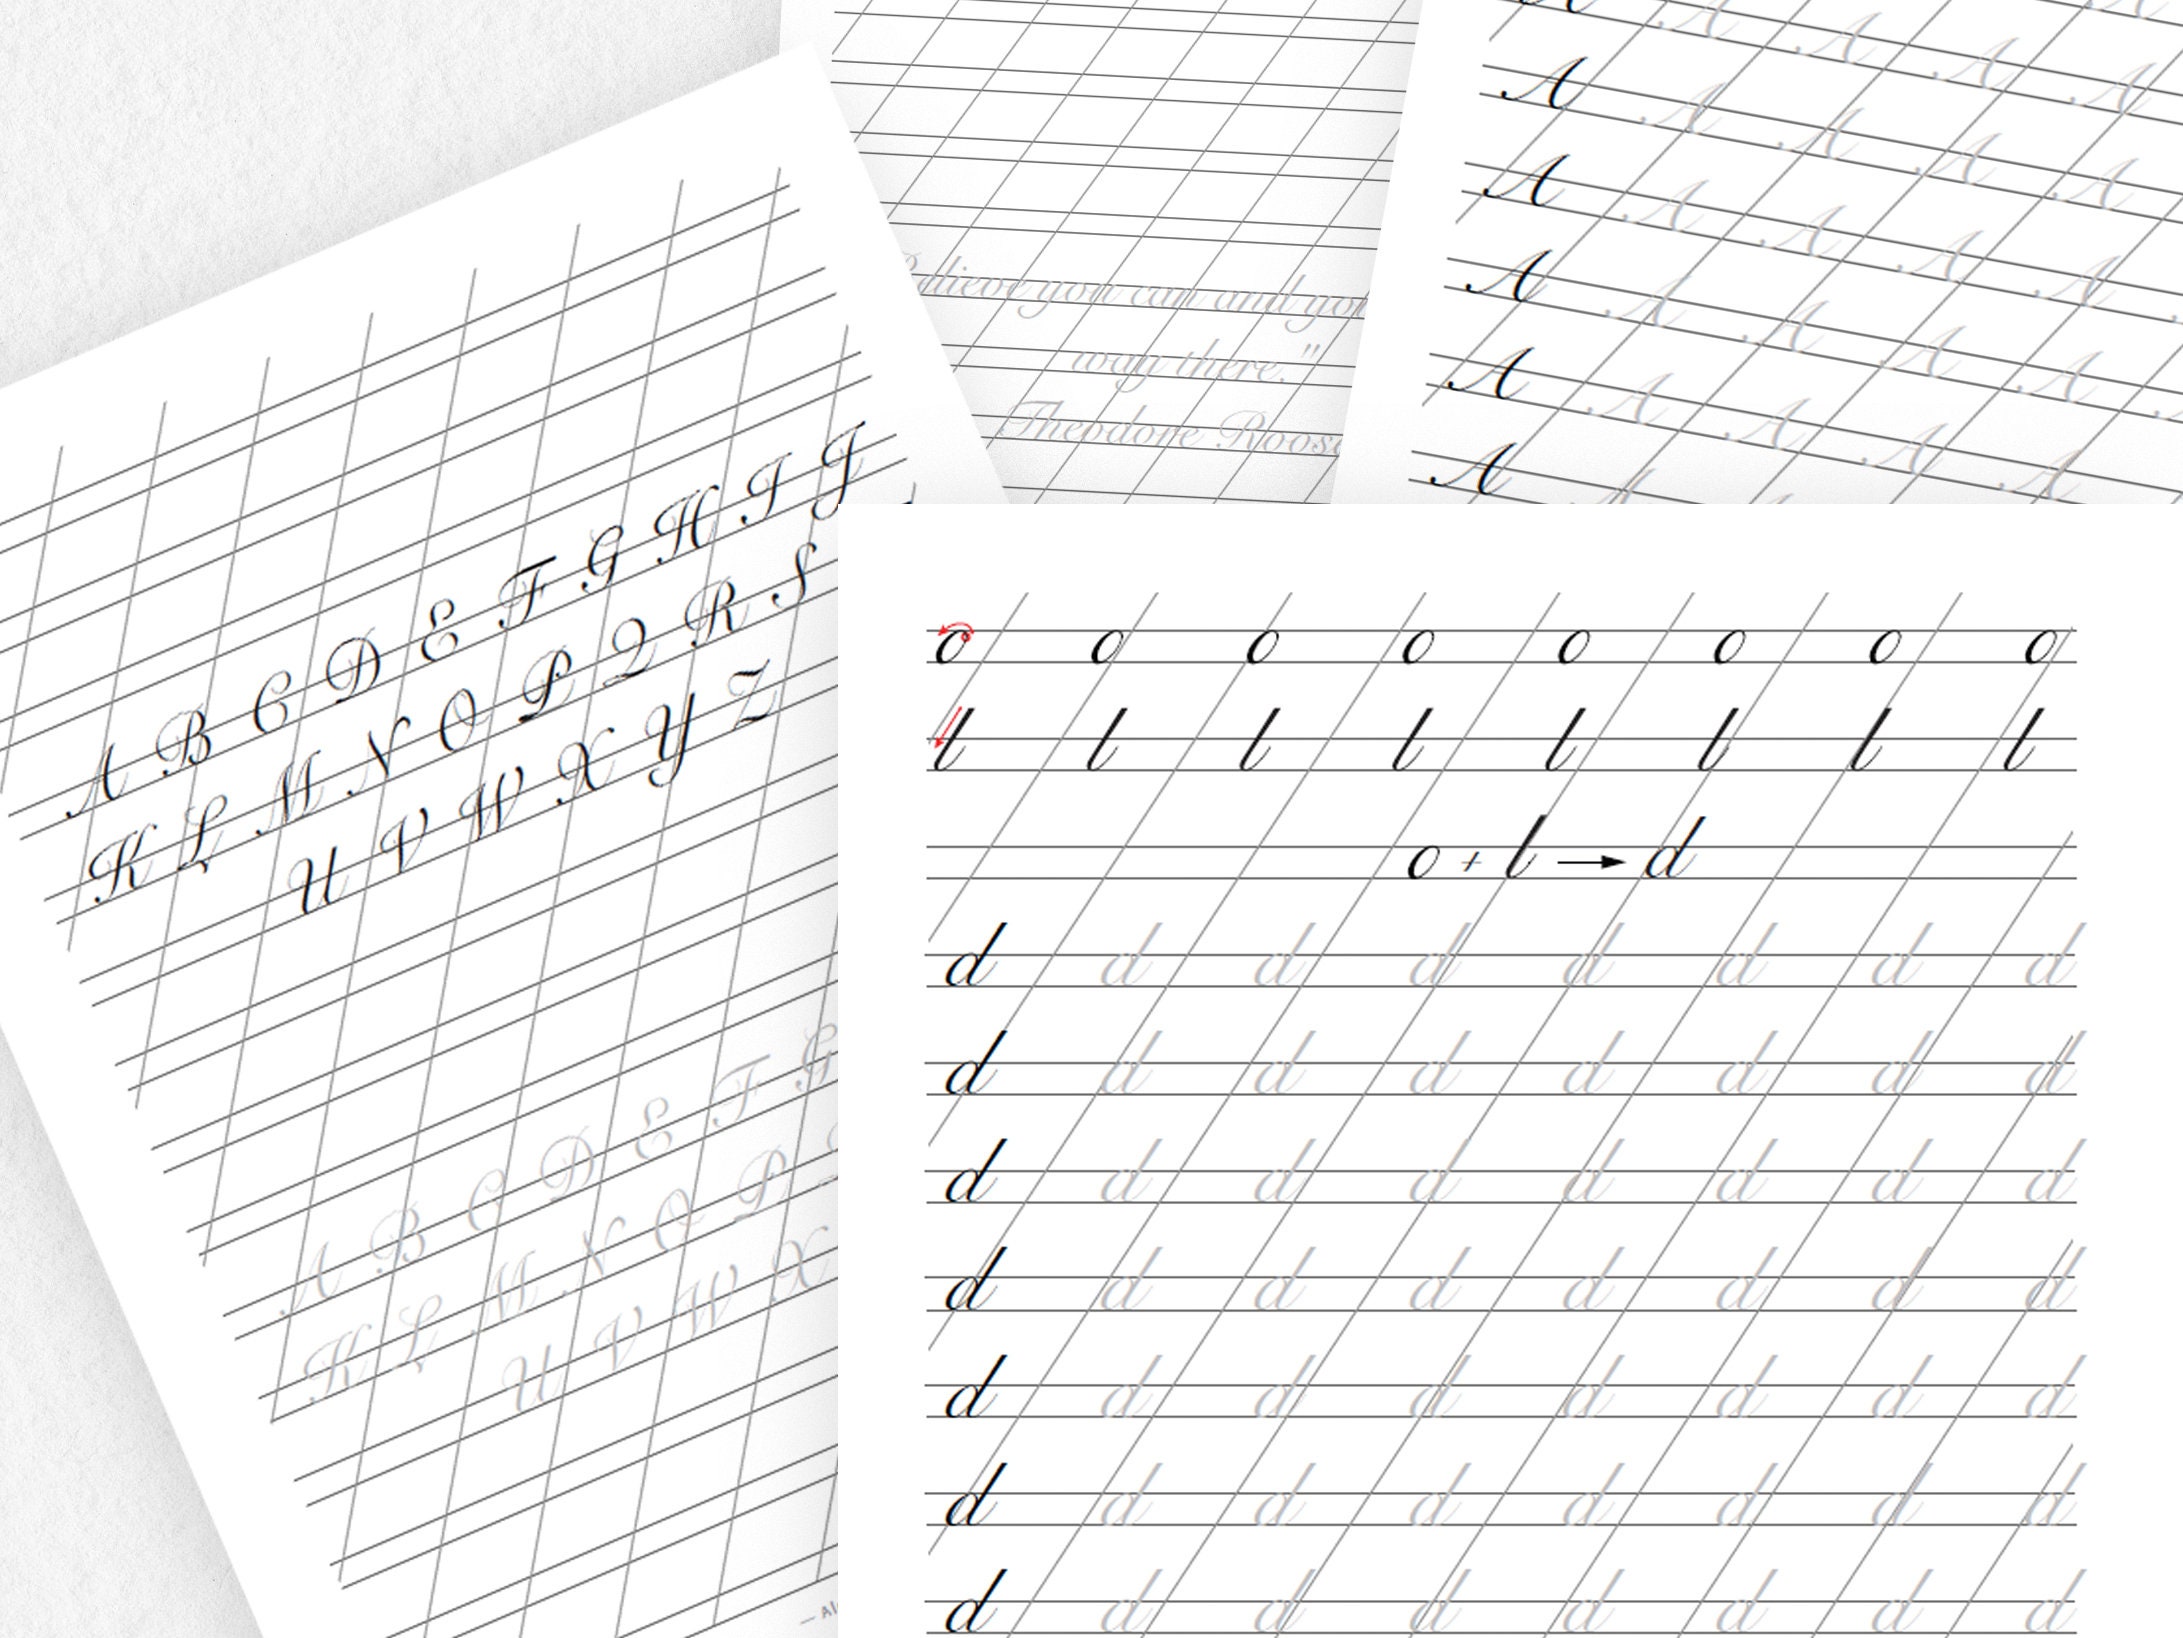 A B C D E F G H I J
K L M N O P Q R S
U V W X Y Z
A B C D E F G
K L M N O P
U V W X
you can and you
way there."
Theodore
A A A A A
A A A A A
A A A A A
A A A A A
A A A A A
A A A A A
o o o o o o o o
l l l l l l l l
o + l → d
d d d d d d d d
d d d d d d d d
d d d d d d d d
d d d d d d d d
d d d d d d d d
d d d d d d d d
d d d d d d d d